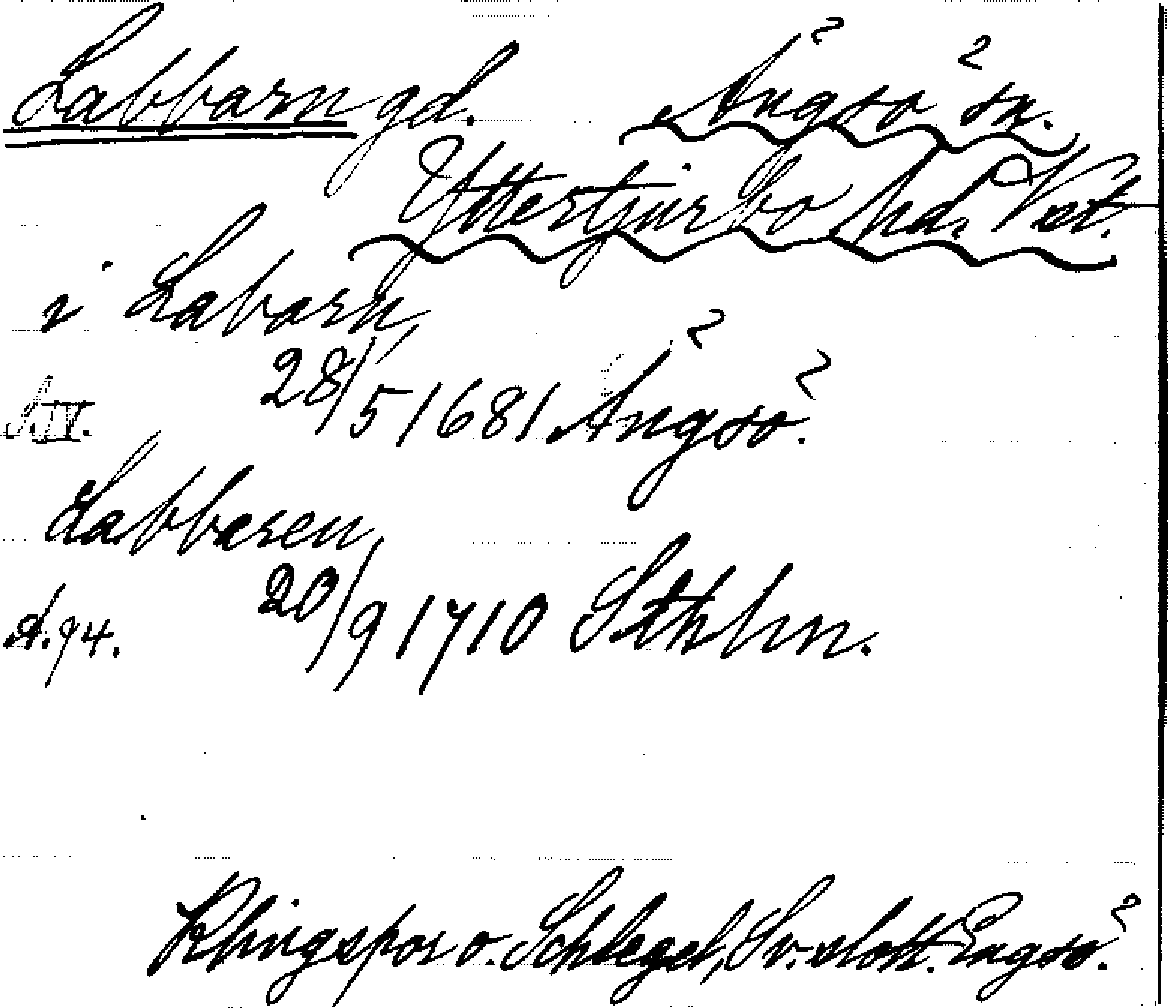 Labbarn gd. Ängsö sn.
Yttertjurbo hd. Vst.
i Labarn,
28/5 1681 Ängsö.
S. IV.
Labbaren,
20/9 1710 Sthlm.
s. 94.
Klingspor o. Schlegel, Sv. slott. Engsö.